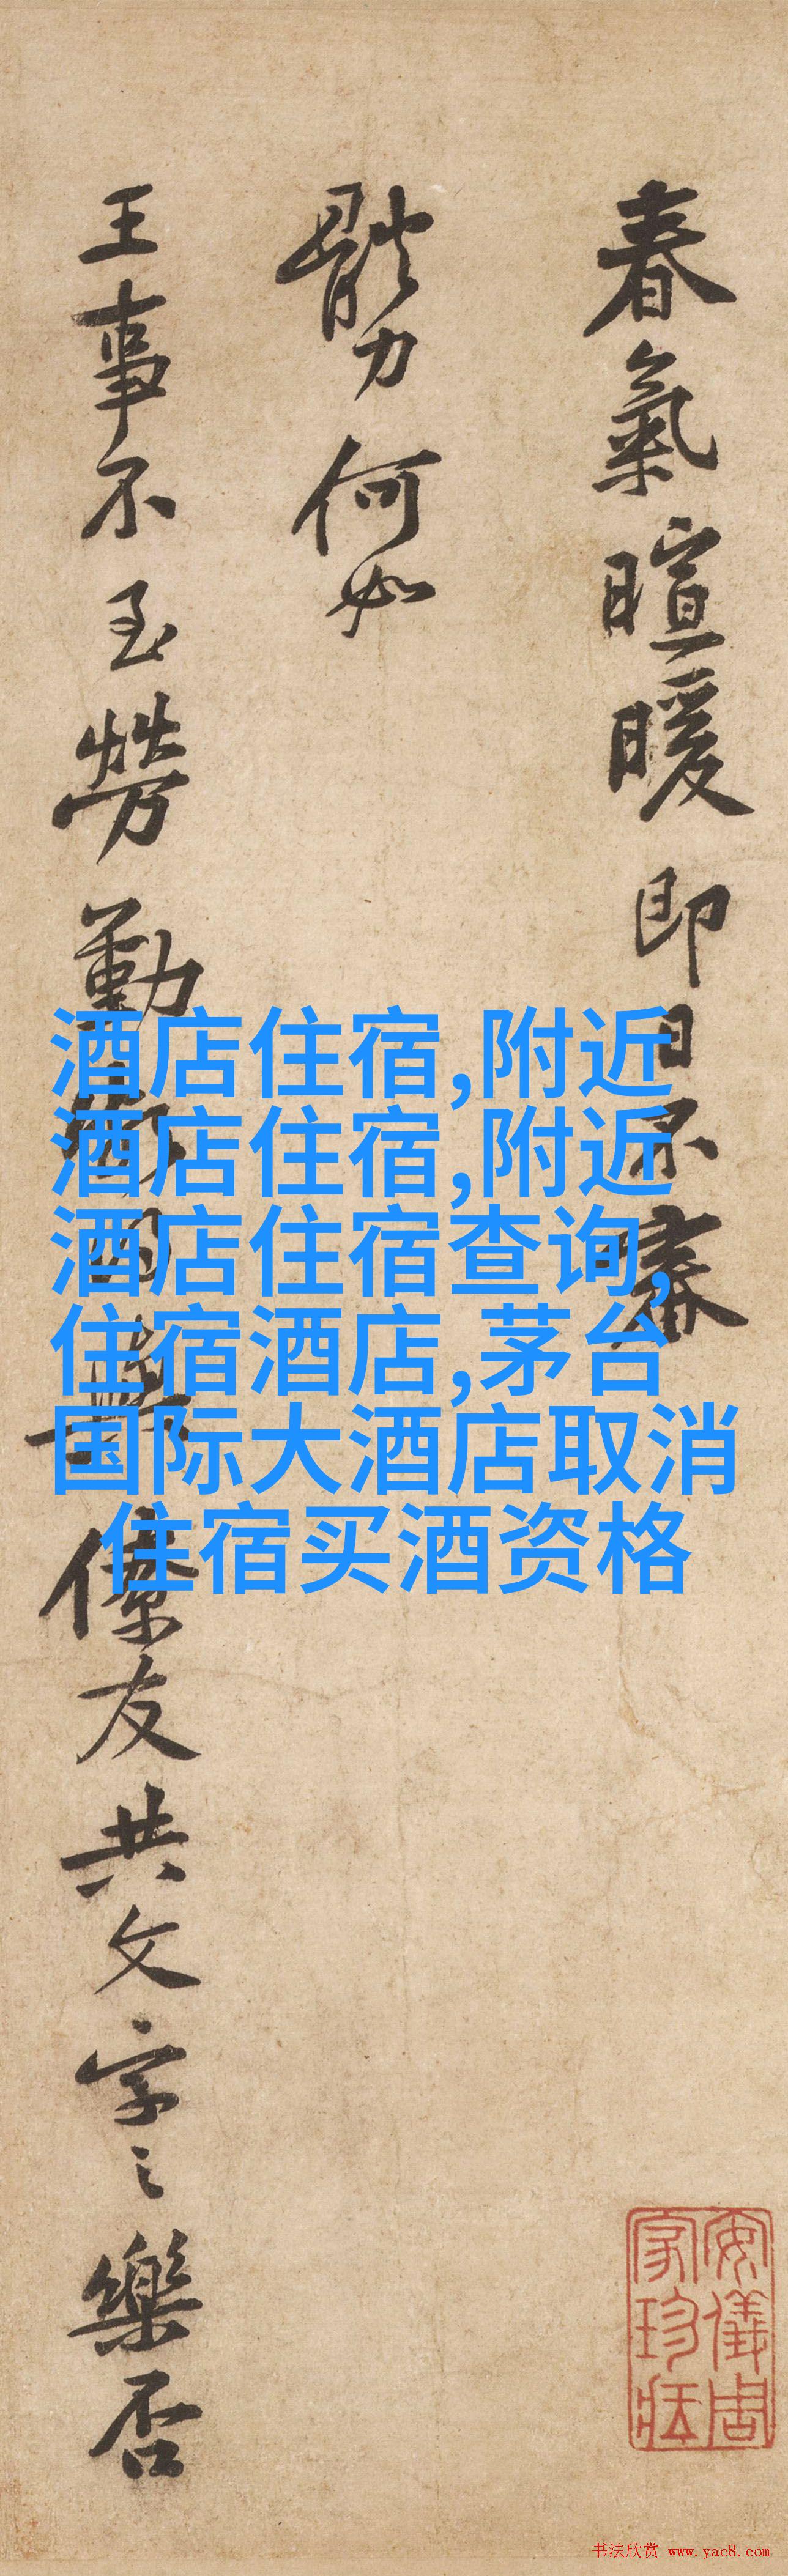 春氣暄暖即日不審
體力何如
王事不至勞勤
僚友共文字之樂否
酒店住宿,附近
酒店住宿,附近
酒店住宿查询,
住宿酒店,茅台
国际大酒店取消
住宿买酒资格
安儀周
家珍藏
书法欣赏 www.yac8.com